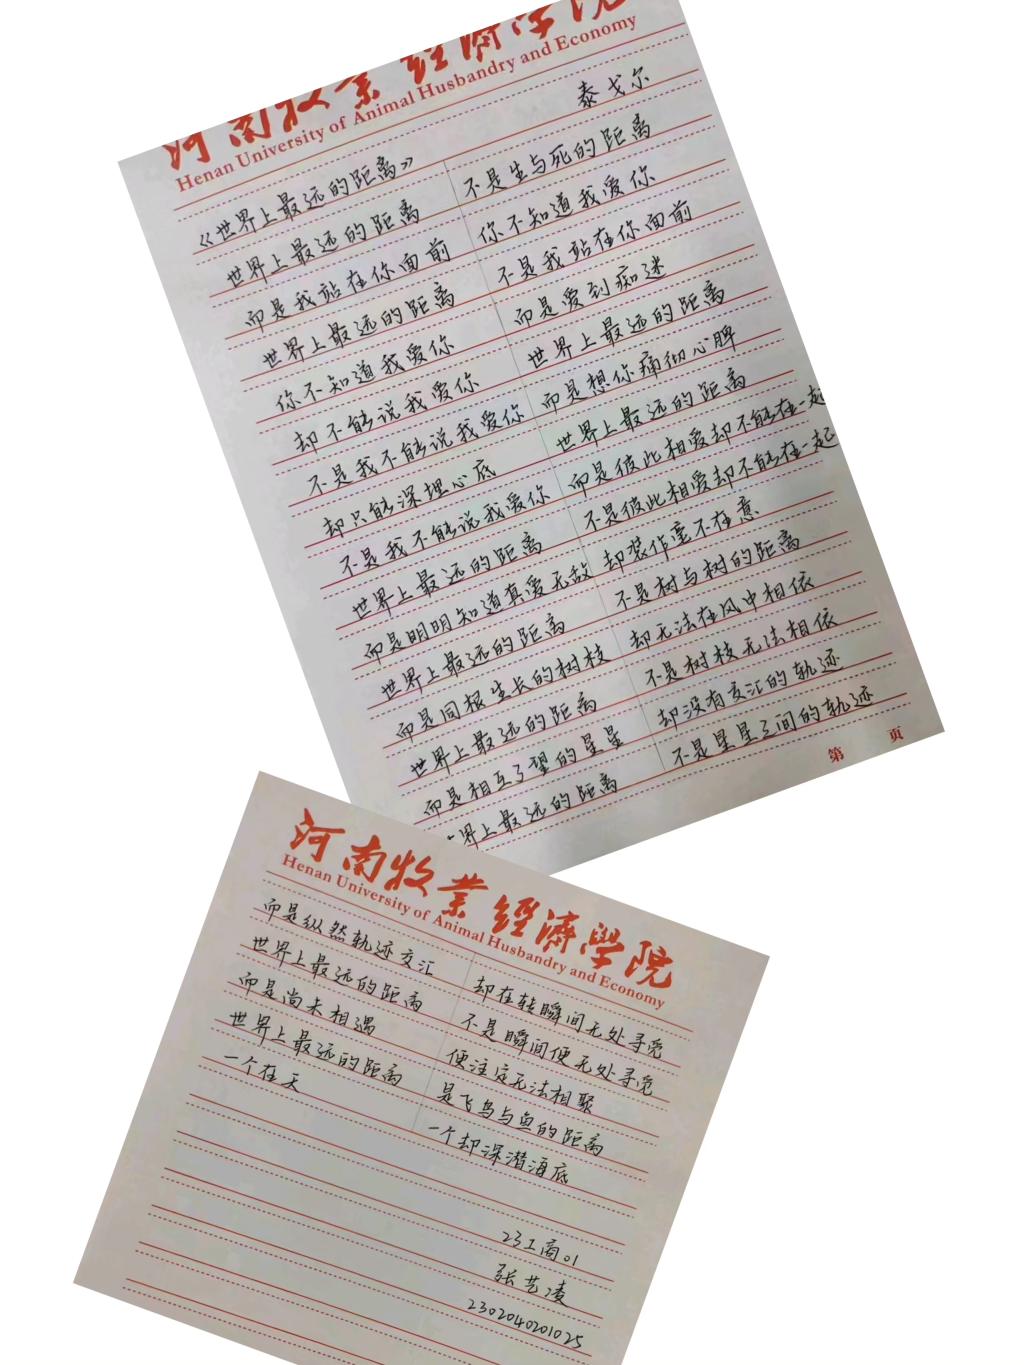 河南牧业經濟學院
Henan University of Animal Husbandry and Economy
泰戈尔
《世界上最远的距离》
世界上最远的距离 不是生与死的距离
而是我站在你面前 你不知道我爱你
世界上最远的距离 不是我站在你面前
你不知道我爱你 而是爱到痴迷
却不能说我爱你 世界上最远的距离
不是我不能说我爱你 而是想你痛彻心脾
却只能深埋心底 世界上最远的距离
不是我不能说我爱你 而是彼此相爱却不能在一起
世界上最远的距离 不是彼此相爱却不能在一起
而是明明知道真爱无敌 却装作毫不在意
世界上最远的距离 不是树与树的距离
而是同根生长的树枝 却无法在风中相依
世界上最远的距离 不是树枝无法相依
而是相互了望的星星 却没有交汇的轨迹
界上最远的距离 不是星星之间的轨迹
第 页
河南牧業經濟學院
Henan University of Animal Husbandry and Economy
而是纵然轨迹交汇 却在转瞬间无处寻觅
世界上最远的距离 不是瞬间便无处寻觅
而是尚未相遇 便注定无法相聚
世界上最远的距离 是飞鸟与鱼的距离
一个在天 一个却深潜海底
23工商01
张艺凌
2302040201025